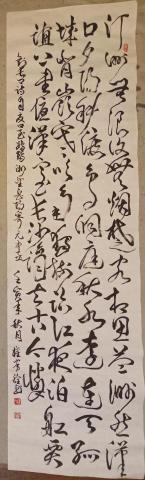 汀洲無浪復無煙楚客相思益渺然漢
口夕陽斜渡鳥洞庭秋水遠連天孤
城背嶺寒吹角獨樹臨江夜泊船賈
誼上書憂漢室長沙謫去古今憐
詩自夏口至鸚鵡洲望岳陽寄元中丞 秋月